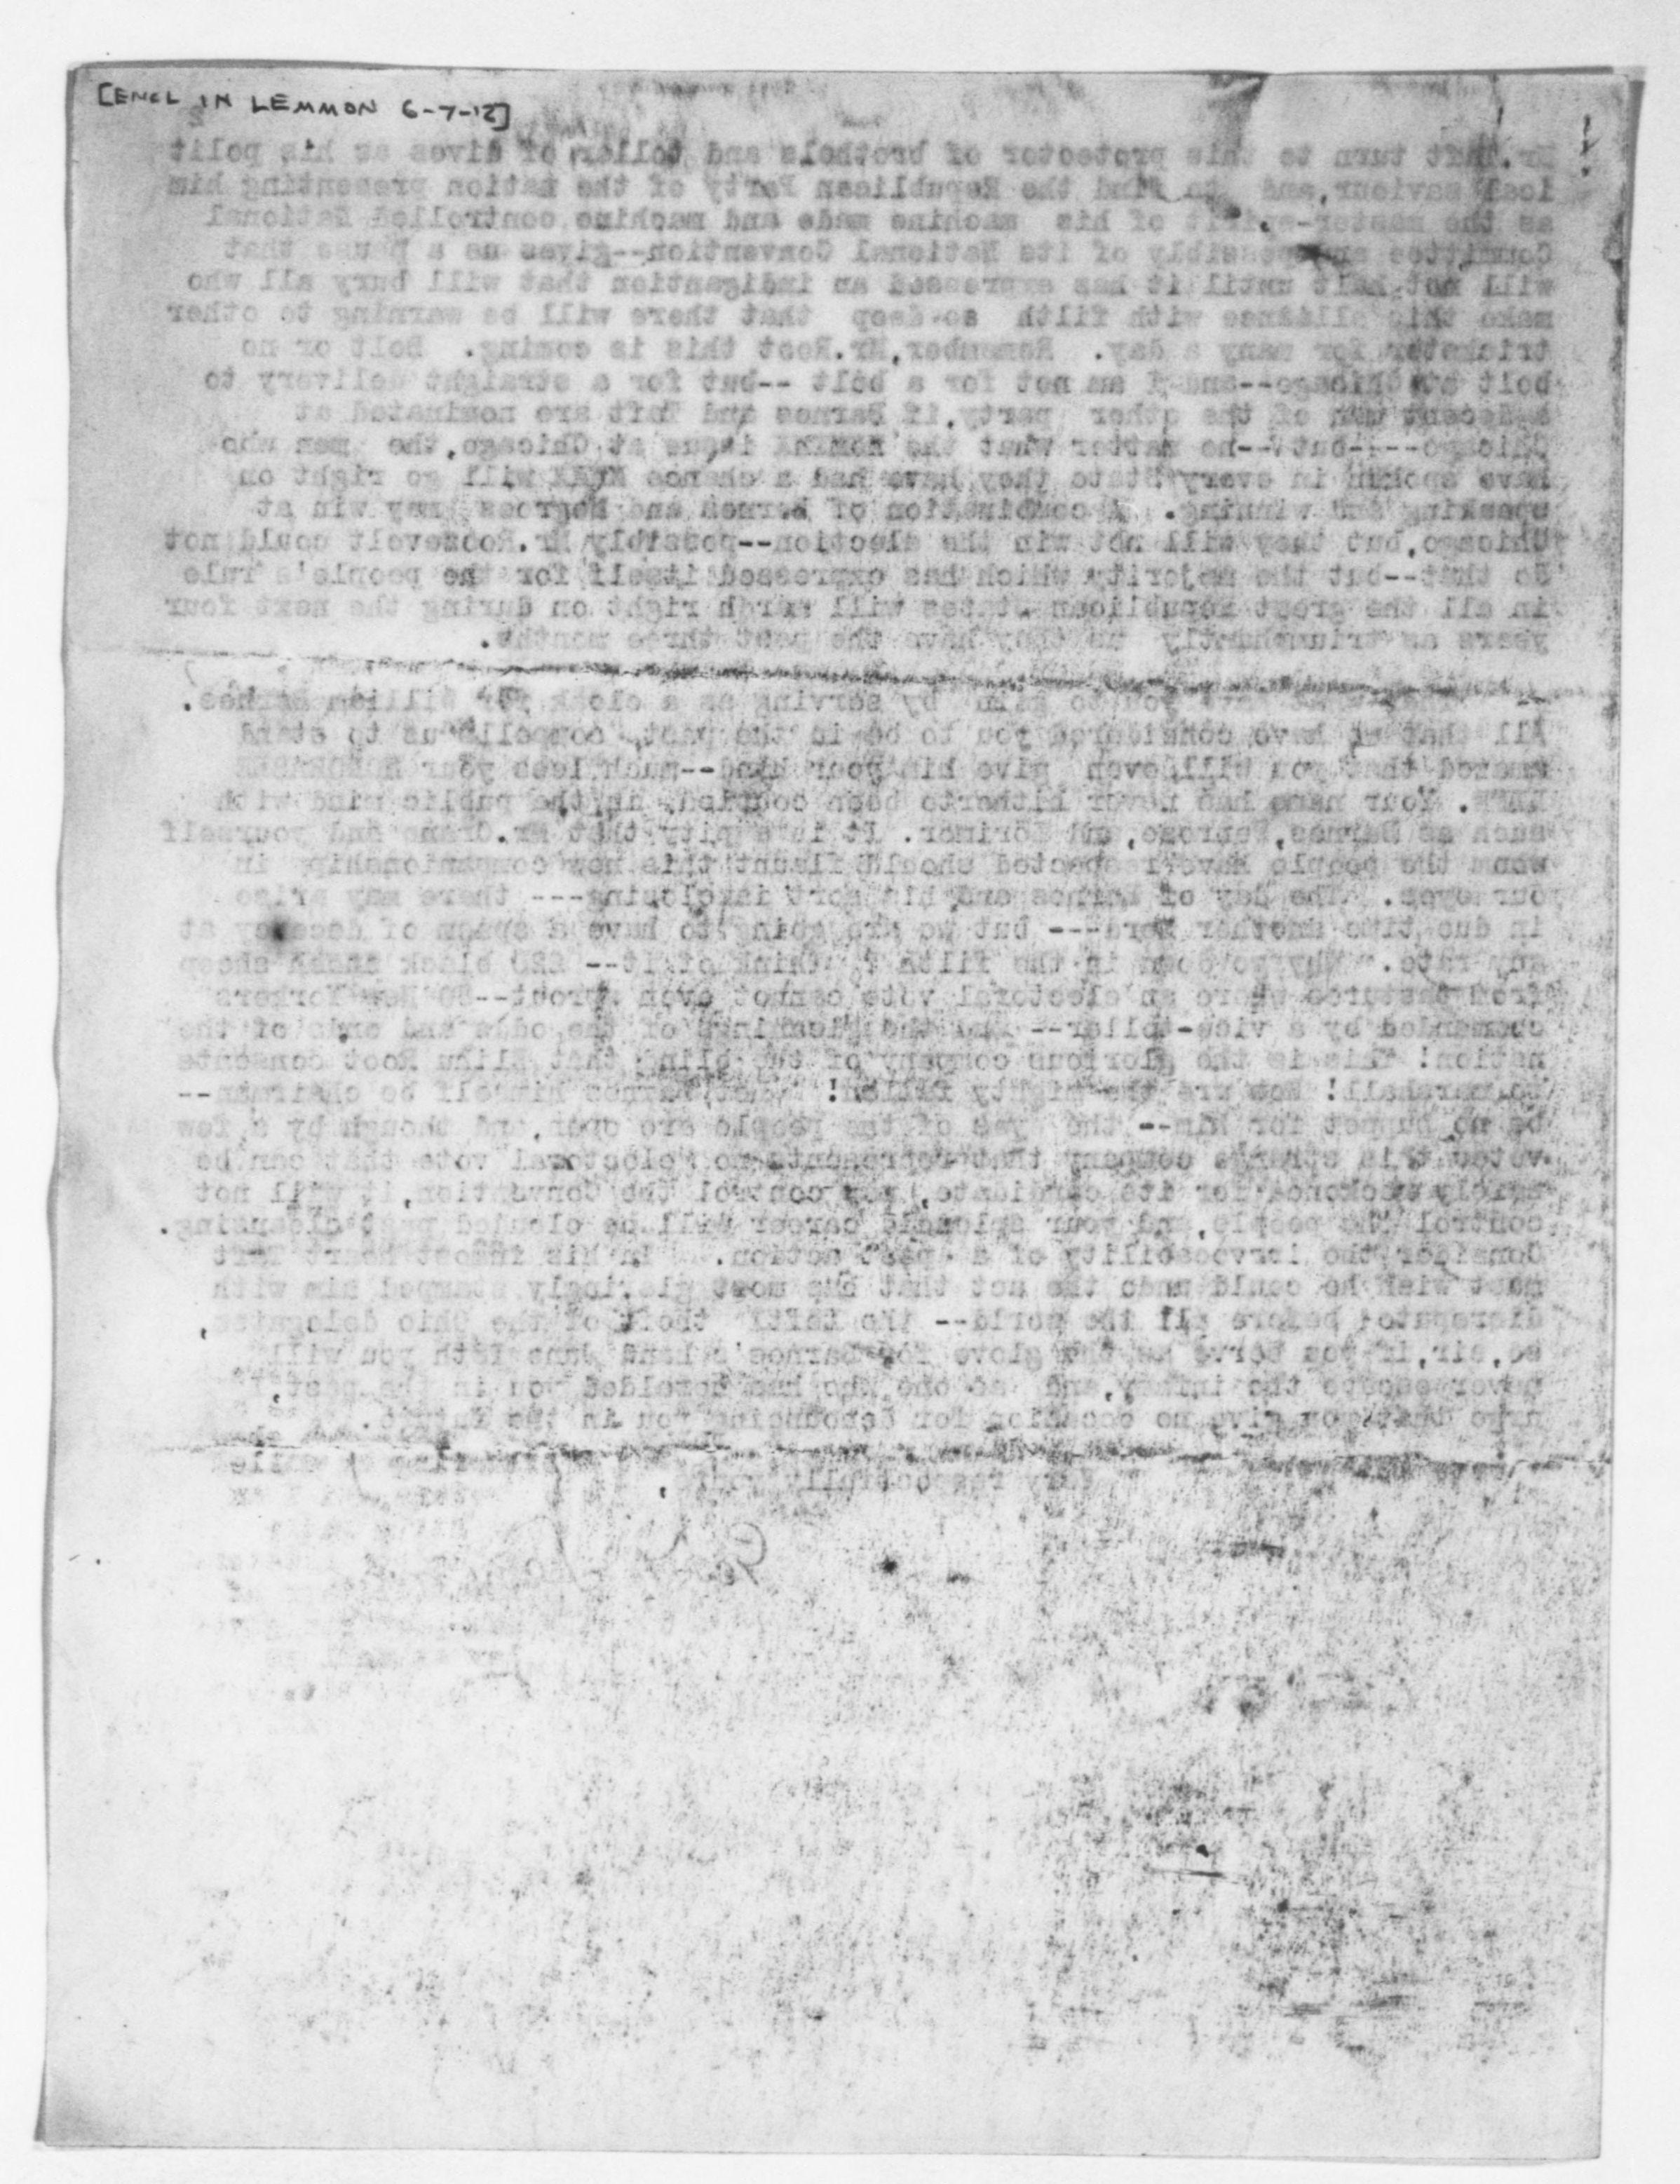 [ENCL IN LEMMON 6-7-12]
Mr.Taft turn to this protector of brothels and toller of dives as his polit
ical saviour,and to find the Republican Party of the nation presenting him
as the master- of his machine made and machine controlled National
Committee and possibly of its National Convention--gives us a pause that
will not halt until it has expressed an indigantion that will bury all who
make this alliance with filth so deep that there will be warning to other
trickster for many a day. Remember,Mr.Root this is coming. Bolt or no
bolt at Chicago--and I am not for a bolt --but for a straight delivery to
a decent man of the other party,if Barnes and Taft are nominated at
Chicago----but--no matter what the issue at Chicago,the men who
have spoken in every State they have had a chance will go right on
speaking and winning. A combination of Barnes and Negroes may win at
Chicago,but they will not win the election--possibly Mr.Roosevelt could not
do that--but the majority which has expressed itself for the people's rule
in all the great Republican States will march right on during the next four
years as triumphantly as they have the past three months.
have you to gain by serving as a cloak for William Barnes.
All that we have considered you to be in the past, compells us to stand
amazed that you will even give him your hand--much less your HONORABLE
NAME. Your name has never hitherto been coupled in the public mind with
such as Barnes,Penrose, and Lorimer. It is a pity that Mr.Crane and yourself
whom the people have respected should flaunt this new companionship in
our eyes. The day of Barnes and his sort is closing--- there may arise
in due time another --- but we are going to have a spasm of decency at
any rate. Why go down in the filth ? Think of it-- 220 black sheep
from pastures where an electoral vote cannot even sprout--80 New Yorkers
commanded by a vice-toller-- and the gleanings of the odds and ends of the
nation! This is the glorious company of the blind that Elihu Root consents
to marshall! How are the mighty fallen! Let Barnes himself be chairman--
be no puppet for him-- the eyes of the people are open,and though by a few
votes this strange company that represents no electoral vote that can be
safely reckoned for its candidate, may control the Convention,it will not
control the people,and your splendid career will be clouded past cleansing.
Consider the irrvocability of a past action. In his inmost heart Taft
must wish he could undo the act that has most glaringly stamped him with
disrepute before all the world-- the theft of the Ohio delegates,
so,sir,if you serve as the glove for Barnes's hand June 18th you will
never escape the infamy,and as one who has heralded you in the past,I
urge that you give no occasion for denouncing you in the future.
Very respectfully